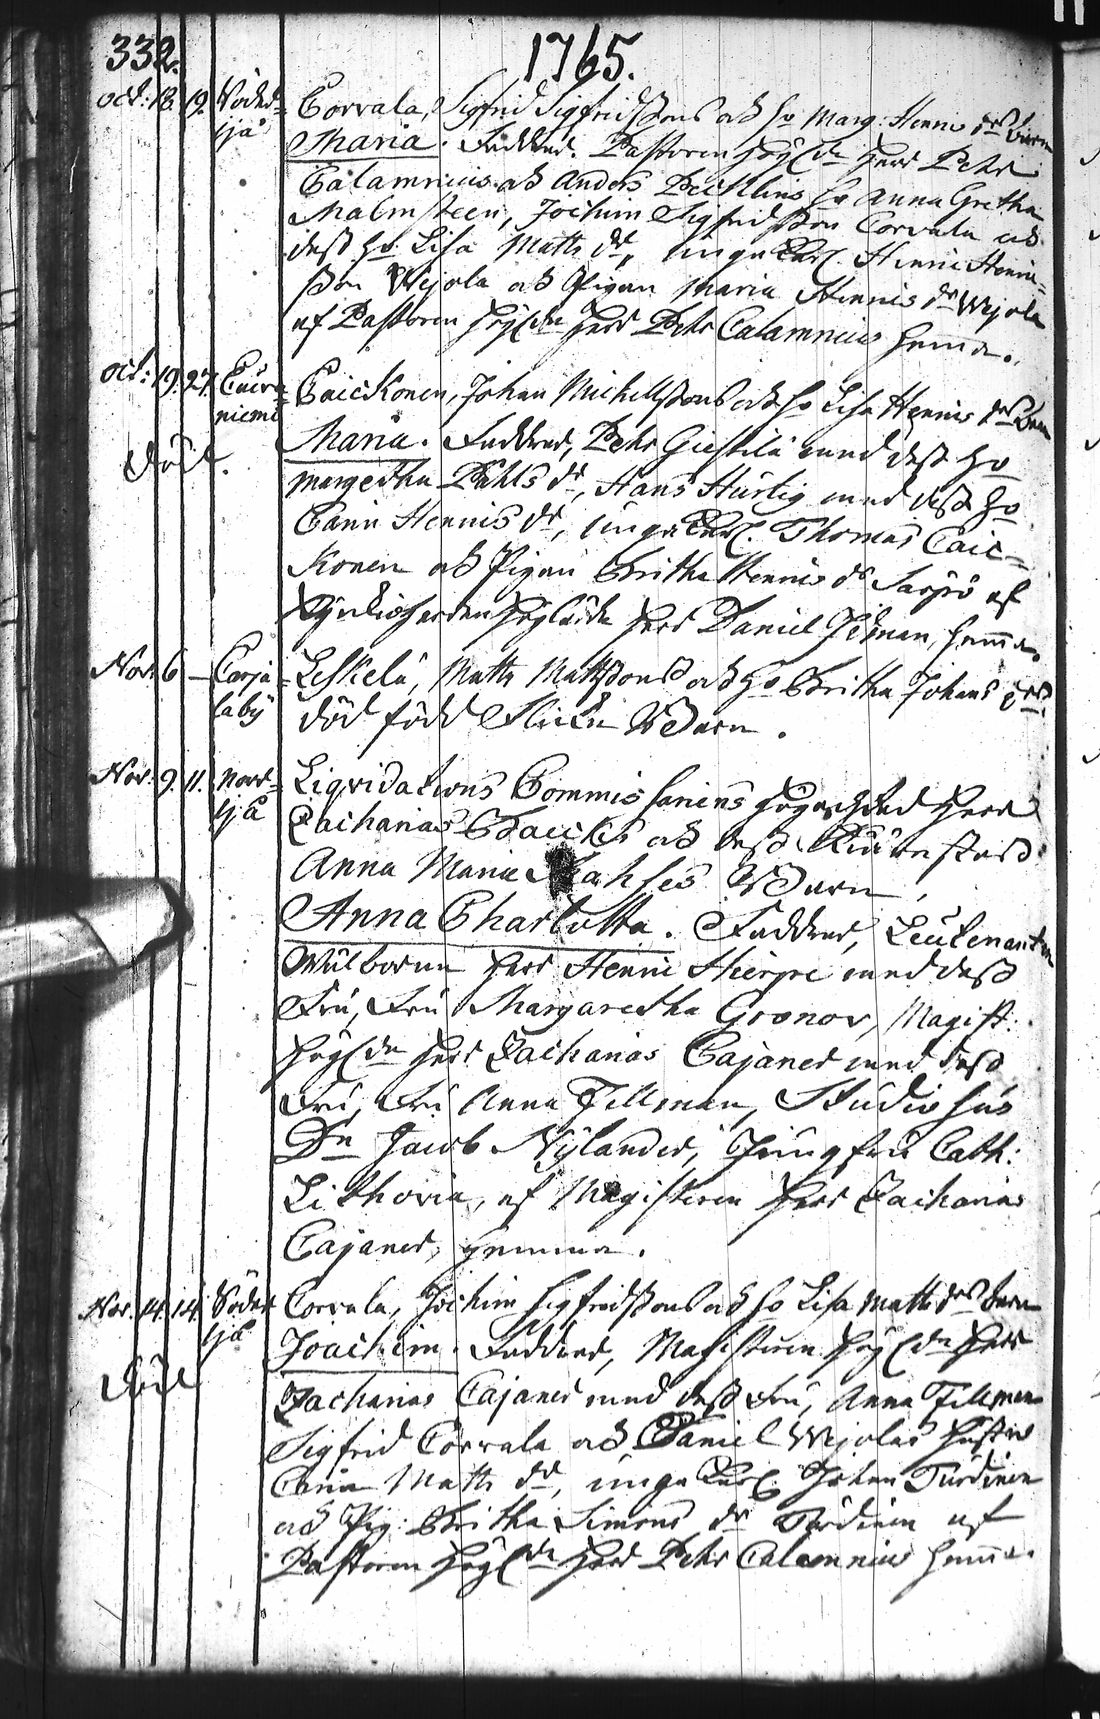 332.
1765.
Oct: 18. 19. Söder-
sjä
Corvala, Sigfrid Sigfridssons och H:o Marg: Hennes d:rs barn
Maria. Faddrar. Pastoren Herr Petr
Calamnius och Anders Becklins H:o Anna Gretha
Malmsteen, Jochim Sigfridsson Corvala och
dess H:o Lisa Matts d:r, unga Karl. Henric Henric-
sson Wejola och Pigan Maria Hennes d:r Wejola
af Pastoren Herr Petr Calamnius hemma.
Oct: 19. 27. Cuira-
niemi
Caickonen, Johan Michellssons och H:o Lisa Hennes d:rs barn
Död.
Maria. Faddrar, Petr Giestilä med dess H:o
Margetha Påhls d:r, Hans Hurtig med dess H:o
Carin Hennes d:r, unga Karl. Thomas Caic-
konen och Pigan Britha Hennes d:r af
Herr Daniel hemma.
Nov: 6 — Carja-
laby
Leskelä, Matts Mattssons och H:o Britha Johans d:rs
död född Flicku Barn.
Nov: 9. 11. Norr-
sjä
Liqvidations Commissariens Herr
Zacharias och dess
Anna Maria Barn,
Anna Charlotta. Faddrar, Leutenanten
Herr Henric Hierpe med dess
Fru, Fru Margaretha Gronov, Magist:
Herr Zacharias Cajaner med dess
Fru, Fru Anna Fellman, Studiosus
Dn Jacob Nylander, Jungfru Cath:
Lithovia, af Magisteren Herr Zacharias
Cajaner, hemma.
Nov. 14. 14. Söder-
sjä
Corvala, Jochim Sigfridssons och H:o Lisa Matts d:rs barn
Joachim. Faddrar, Magisteren Herr
Död
Zacharias Cajaner med dess Fru, Anna Fellman
Sigfrid Corvala och Daniel Wejolas Hustru
Carin Matts d:r, unga Karl. Johan Turdinen
och Pig: Britha Simons d:r Turdinen af
Pastoren Herr Petr Calamnius hemma.